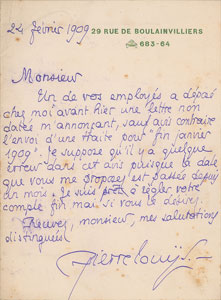 24 février 1909
29 RUE DE BOULAINVILLIERS
683-64
Monsieur
Un de vos employés a déposé
chez moi avant hier une lettre non
datée m'annonçant, sauf avis contraire
l'envoi d'une traite pour "fin janvier
1909". Je suppose qu'il y a quelque
erreur dans cet avis puisque la date
que vous me proposez est passée depuis
un mois. Je suis prêt à régler votre
compte fin mai, si vous le désirez.
Recevez, monsieur, mes salutations
distinguées
Pierre Louÿs